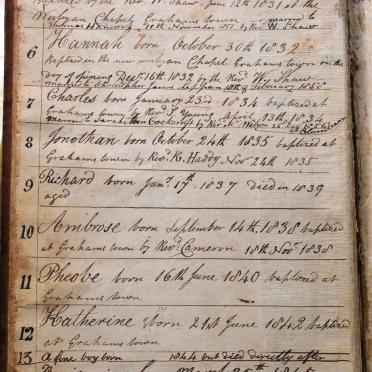 baptised by the Revd W. Shaw June 12th 1831 at the
Wesleyan Chapel Grahams town married to
10th November 1851 by Revd W. Shaw
6 Hannah born October 30th 1832
Baptized in the new wesleyan Chapel Grahams town on the
day of opening Decr 16th 1832 by the Revd Wm Shaw
married to Christopher James 10th of February 1858
7 Charles born January 23rd 1834 baptized at
Grahams town by Revd S. Young April 23th 1834
married to
8 Jonothan born October 24th 1835 baptized at
Grahams town by Revd R. Haddy Novr 24th 1835
9 Richard born Jany 17th 1837 died in 1839
aged
10 Ambrose born September 14th 1838 baptized
at Grahams town by Revd Cameron 18th Novr 1838
11 Pheobe born 16th June 1840 baptized at
Grahams town
12 Katherine born 21st June 1842 baptized
at Grahams town
13 A fine boy born 1844 but died directly after